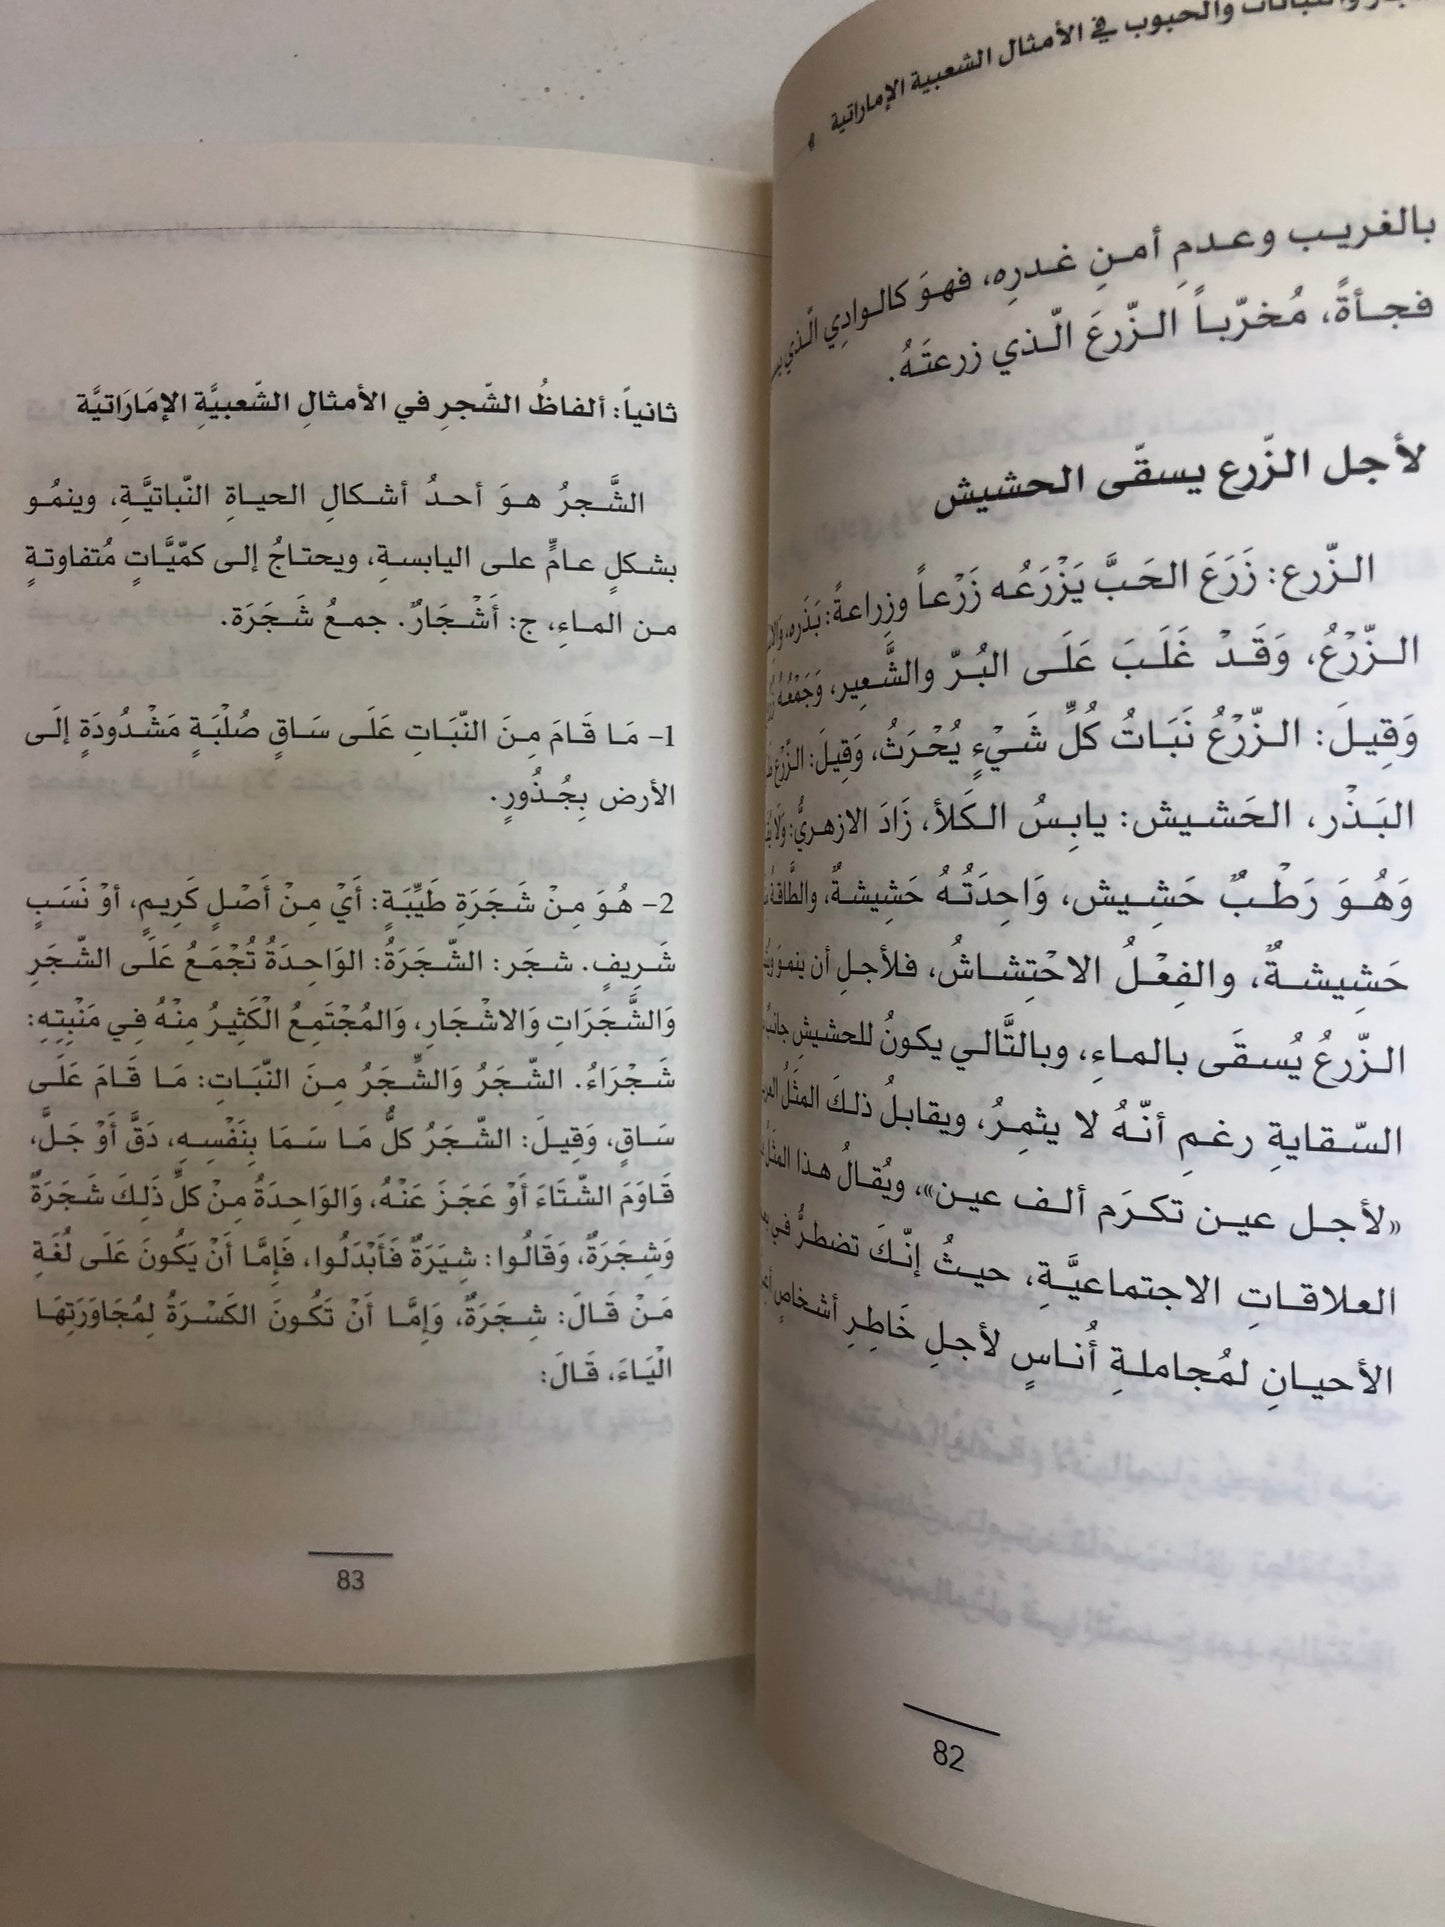 والحبوب في الأمثال الشعبية الإماراتية
بالغريب وعدمِ أمنِ غدرِه، فهوَ كالوادِي الّذي
فجأةً، مُخرّباً الزّرعَ الّذي زرعتَهُ.
لأجل الزّرع يسقّى الحشيش
الزّرع: زَرَعَ الحَبَّ يَزْرَعُه زَرْعاً وزِراعةً: بَذَره،
الزّرْعُ، وَقَدْ غَلَبَ عَلَى البُرّ والشَّعِير، وَجَمْعُهُ
وَقِيلَ: الزّرْعُ نَبَاتُ كُلِّ شَيْءٍ يُحْرَثُ، وَقِيلَ: الزَّرْع
البَذْر، الحَشيش: يابِسُ الكَلأ، زَادَ الازهريُّ:
وَهُوَ رَطْبٌ حَشِيش، وَاحِدَتُهُ حَشِيشةٌ، والطَّاقةُ
حَشِيشةٌ، والفِعْلُ الاحْتِشاشُ، فلأجلِ أن ينموَ
الزّرعُ يُسقَى بالماءِ، وبالتَّالي يكونُ للحشيشِ جانبٌ
السّقايةِ رغمِ أنّهُ لا يثمِرُ، ويقابلُ ذلكَ المثَلُ
«لأجل عين تكرَم ألف عين»، ويُقالُ هذا المثَلُ
العلاقاتِ الاجتماعيَّةِ، حيثُ إنّكَ تضطرُّ في
الأحيانِ لمُجاملةِ أُناسٍ لأجلِ خَاطِرِ أشخاصٍ
82
ثانياً: ألفاظُ الشّجرِ في الأمثالِ الشّعبيَّةِ الإمَارَاتيَّة
الشَّجرُ هوَ أحدُ أشكالِ الحياةِ النّباتيَّةِ، وينمُو
بشكلٍ عامٍّ على اليابسةِ، ويحتاجُ إلى كمّيَّاتٍ مُتفاوتةٍ
من الماءِ، ج: أَشْجَارٌ. جمعُ شَجَرَة.
1- مَا قَامَ مِنَ النّبَاتِ عَلَى سَاقٍ صُلْبَةٍ مَشْدُودَةٍ إلَى
الأرض بِجُذُورٍ.
2- هُوَ مِنْ شَجَرَةِ طَيِّبَةٍ: أَيْ مِنْ أَصْلٍ كَرِيمٍ، أوْ نَسَبٍ
شَرِيفٍ. شجَر: الشّجَرَةُ: الوَاحِدَةُ تُجْمَعُ عَلَى الشّجَرِ
وَالشَّجَرَاتِ وَالاشْجَارِ، وَالمُجْتَمِعُ الْكَثِيرُ مِنْهُ فِي مَنْبِتِهِ:
شَجْرَاءُ. الشّجَرُ وَالشِّجَرُ مِنَ النّبَاتِ: مَا قَامَ عَلَى
سَاقٍ، وَقِيلَ: الشّجَرُ كلُّ مَا سَمَا بِنَفْسِهِ، دَقَّ أَوْ جَلَّ،
قَاوَمَ الشّتَاءَ أَوْ عَجَزَ عَنْهُ، وَالوَاحِدَةُ مِنْ كلِّ ذَلِكَ شَجَرَةٌ
وَشِجَرَةٌ، وَقَالُوا: شِيَرَةٌ فَأَبْدَلُوا، فَإمَّا أَنْ يَكُونَ عَلَى لُغَةِ
مَنْ قَالَ: شِجَرَةٌ، وَإِمَّا أَنْ تَكُونَ الكَسْرَةُ لِمُجَاوَرَتِهَا
الْيَاءَ، قَالَ:
83